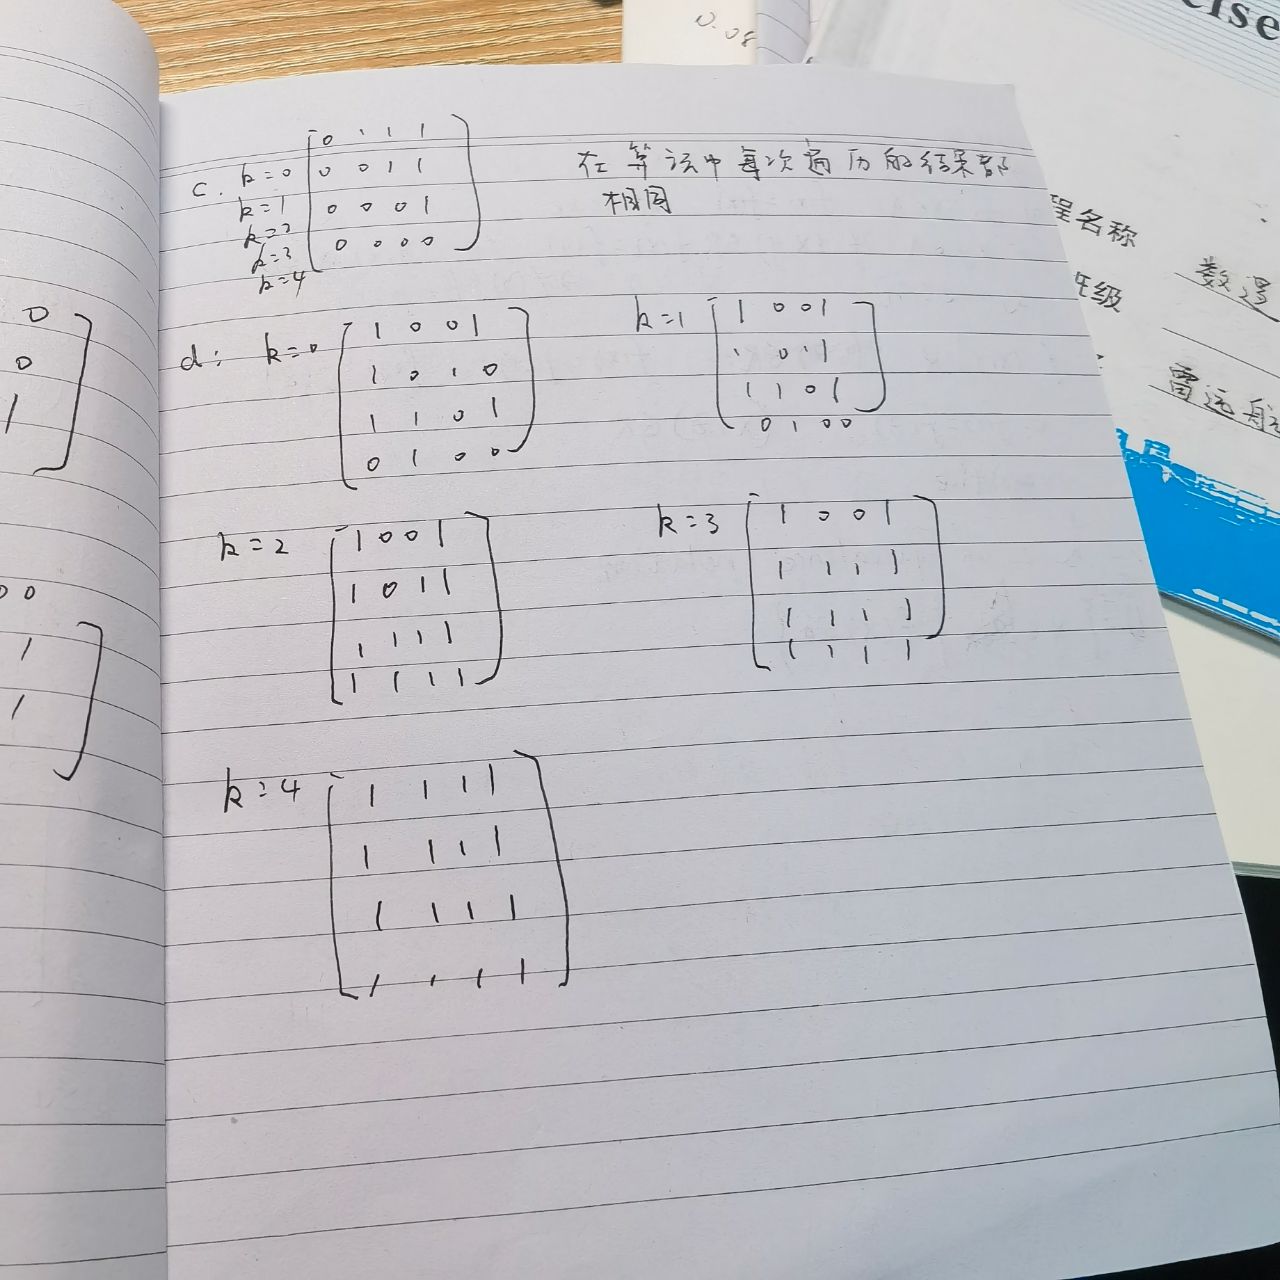 0.08
cise
程名称
数逻
班级
雷远航
c. k=0
k=1
k=2
k=3
k=4
0 1 1 1
0 0 1 1
0 0 0 1
0 0 0 0
在算法中每次遍历的结果都
相同
d: k=0
1 0 0 1
1 0 1 0
1 1 0 1
0 1 0 0
k=1
1 0 0 1
1 0 1 1
1 1 0 1
0 1 0 0
k=2
1 0 0 1
1 0 1 1
1 1 1 1
1 1 1 1
k=3
1 0 0 1
1 1 1 1
1 1 1 1
1 1 1 1
k=4
1 1 1 1
1 1 1 1
1 1 1 1
1 1 1 1
0
0
1
0 0
1
1